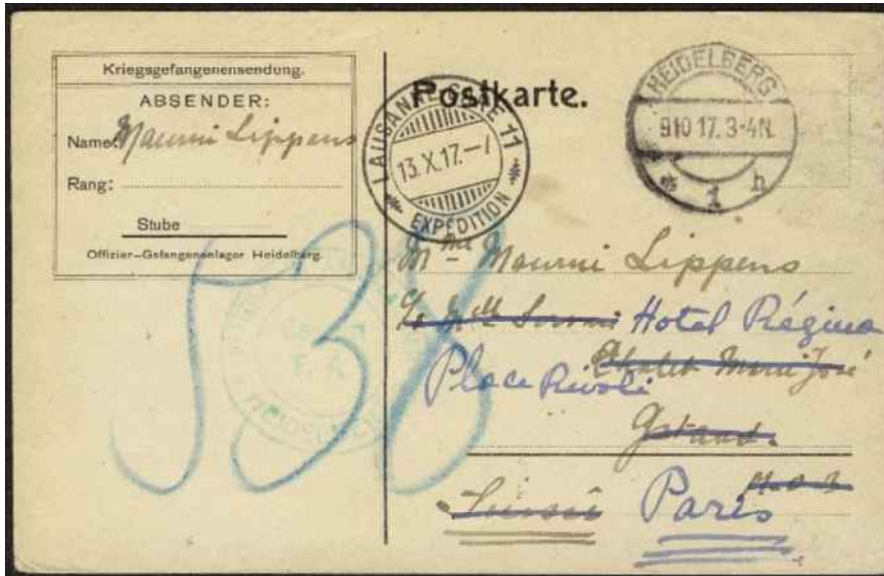 Kriegsgefangenensendung.
ABSENDER:
Name: Maurice Lippens
Rang:
Stube
Offizier-Gefangenenlager Heidelberg.
Postkarte.
LAUSANNE GARE 11
13.X.17.-7
EXPÉDITION
HEIDELBERG
9 10 17. 3-4N.
* 1 h
Mme Maurice Lippens
Hotel Régina
Chalet Marie José
Place Rivoli
Gstaad.
Suisse Paris
538